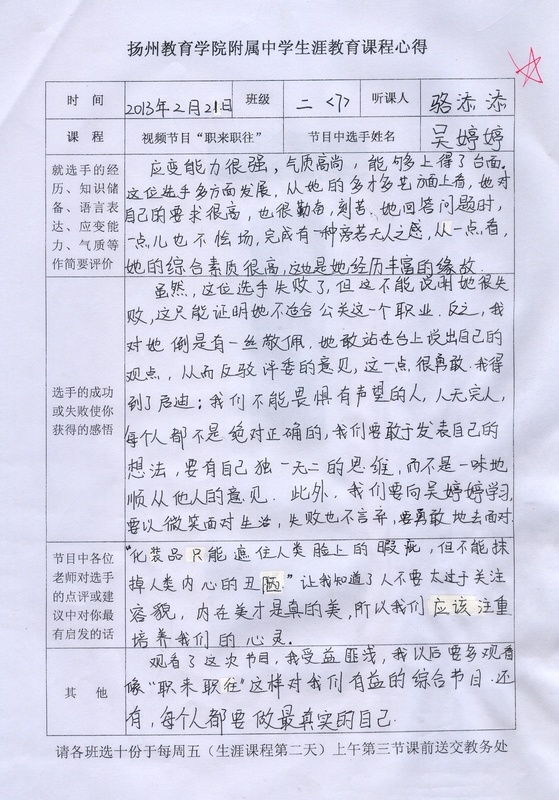 扬州教育学院附属中学生涯教育课程心得
时 间 2013年2月21日 班级 二<7> 听课人 骆添添
课 程 视频节目“职来职往” 节目中选手姓名 吴婷婷
就选手的经
历、知识储
备、语言表
达、应变能
力、气质等
作简要评价
应变能力很强，气质高尚，能够上得了台面。
这位选手多方面发展，从她的多才多艺方面上看，她对
自己的要求很高，也很勤奋，刻苦。她回答问题时，
一点儿也不怯场，完成有一种旁若无人之感，从一点，看，
她的综合素质很高，这也是她经历丰富的缘故。
选手的成功
或失败使你
获得的感悟
虽然，这位选手失败了，但这不能说明她很失
败，这只能证明她不适合公关这一个职业。反之，我
对她倒是有一丝敬佩，她敢站在台上说出自己的
观点，从而反驳评委的意见，这一点，很勇敢。我得
到了启迪；我们不能畏惧有声望的人，人无完人，
每个人都不是绝对正确的，我们要敢于发表自己的
想法，要有自己独一无二的思维，而不是一味地
顺从他人的意见。此外，我们要向吴婷婷学习，
要以微笑面对生活，失败也不言弃，要勇敢地去面对。
节目中各位
老师对选手
的点评或建
议中对你最
有启发的话
“化装品只能遮住人类脸上的瑕疵，但不能抹
掉人类内心的丑陋。”让我知道了人不要太过于关注
容貌，内在美才是真的美，所以我们应该注重
培养我们的心灵。
其 他
观看了这次节目，我受益匪浅，我以后要多观看
像“职来职往”这样对我们有益的综合节目。还
有，每个人都要做最真实的自己。
请各班选十份于每周五（生涯课程第二天）上午第三节课前送交教务处